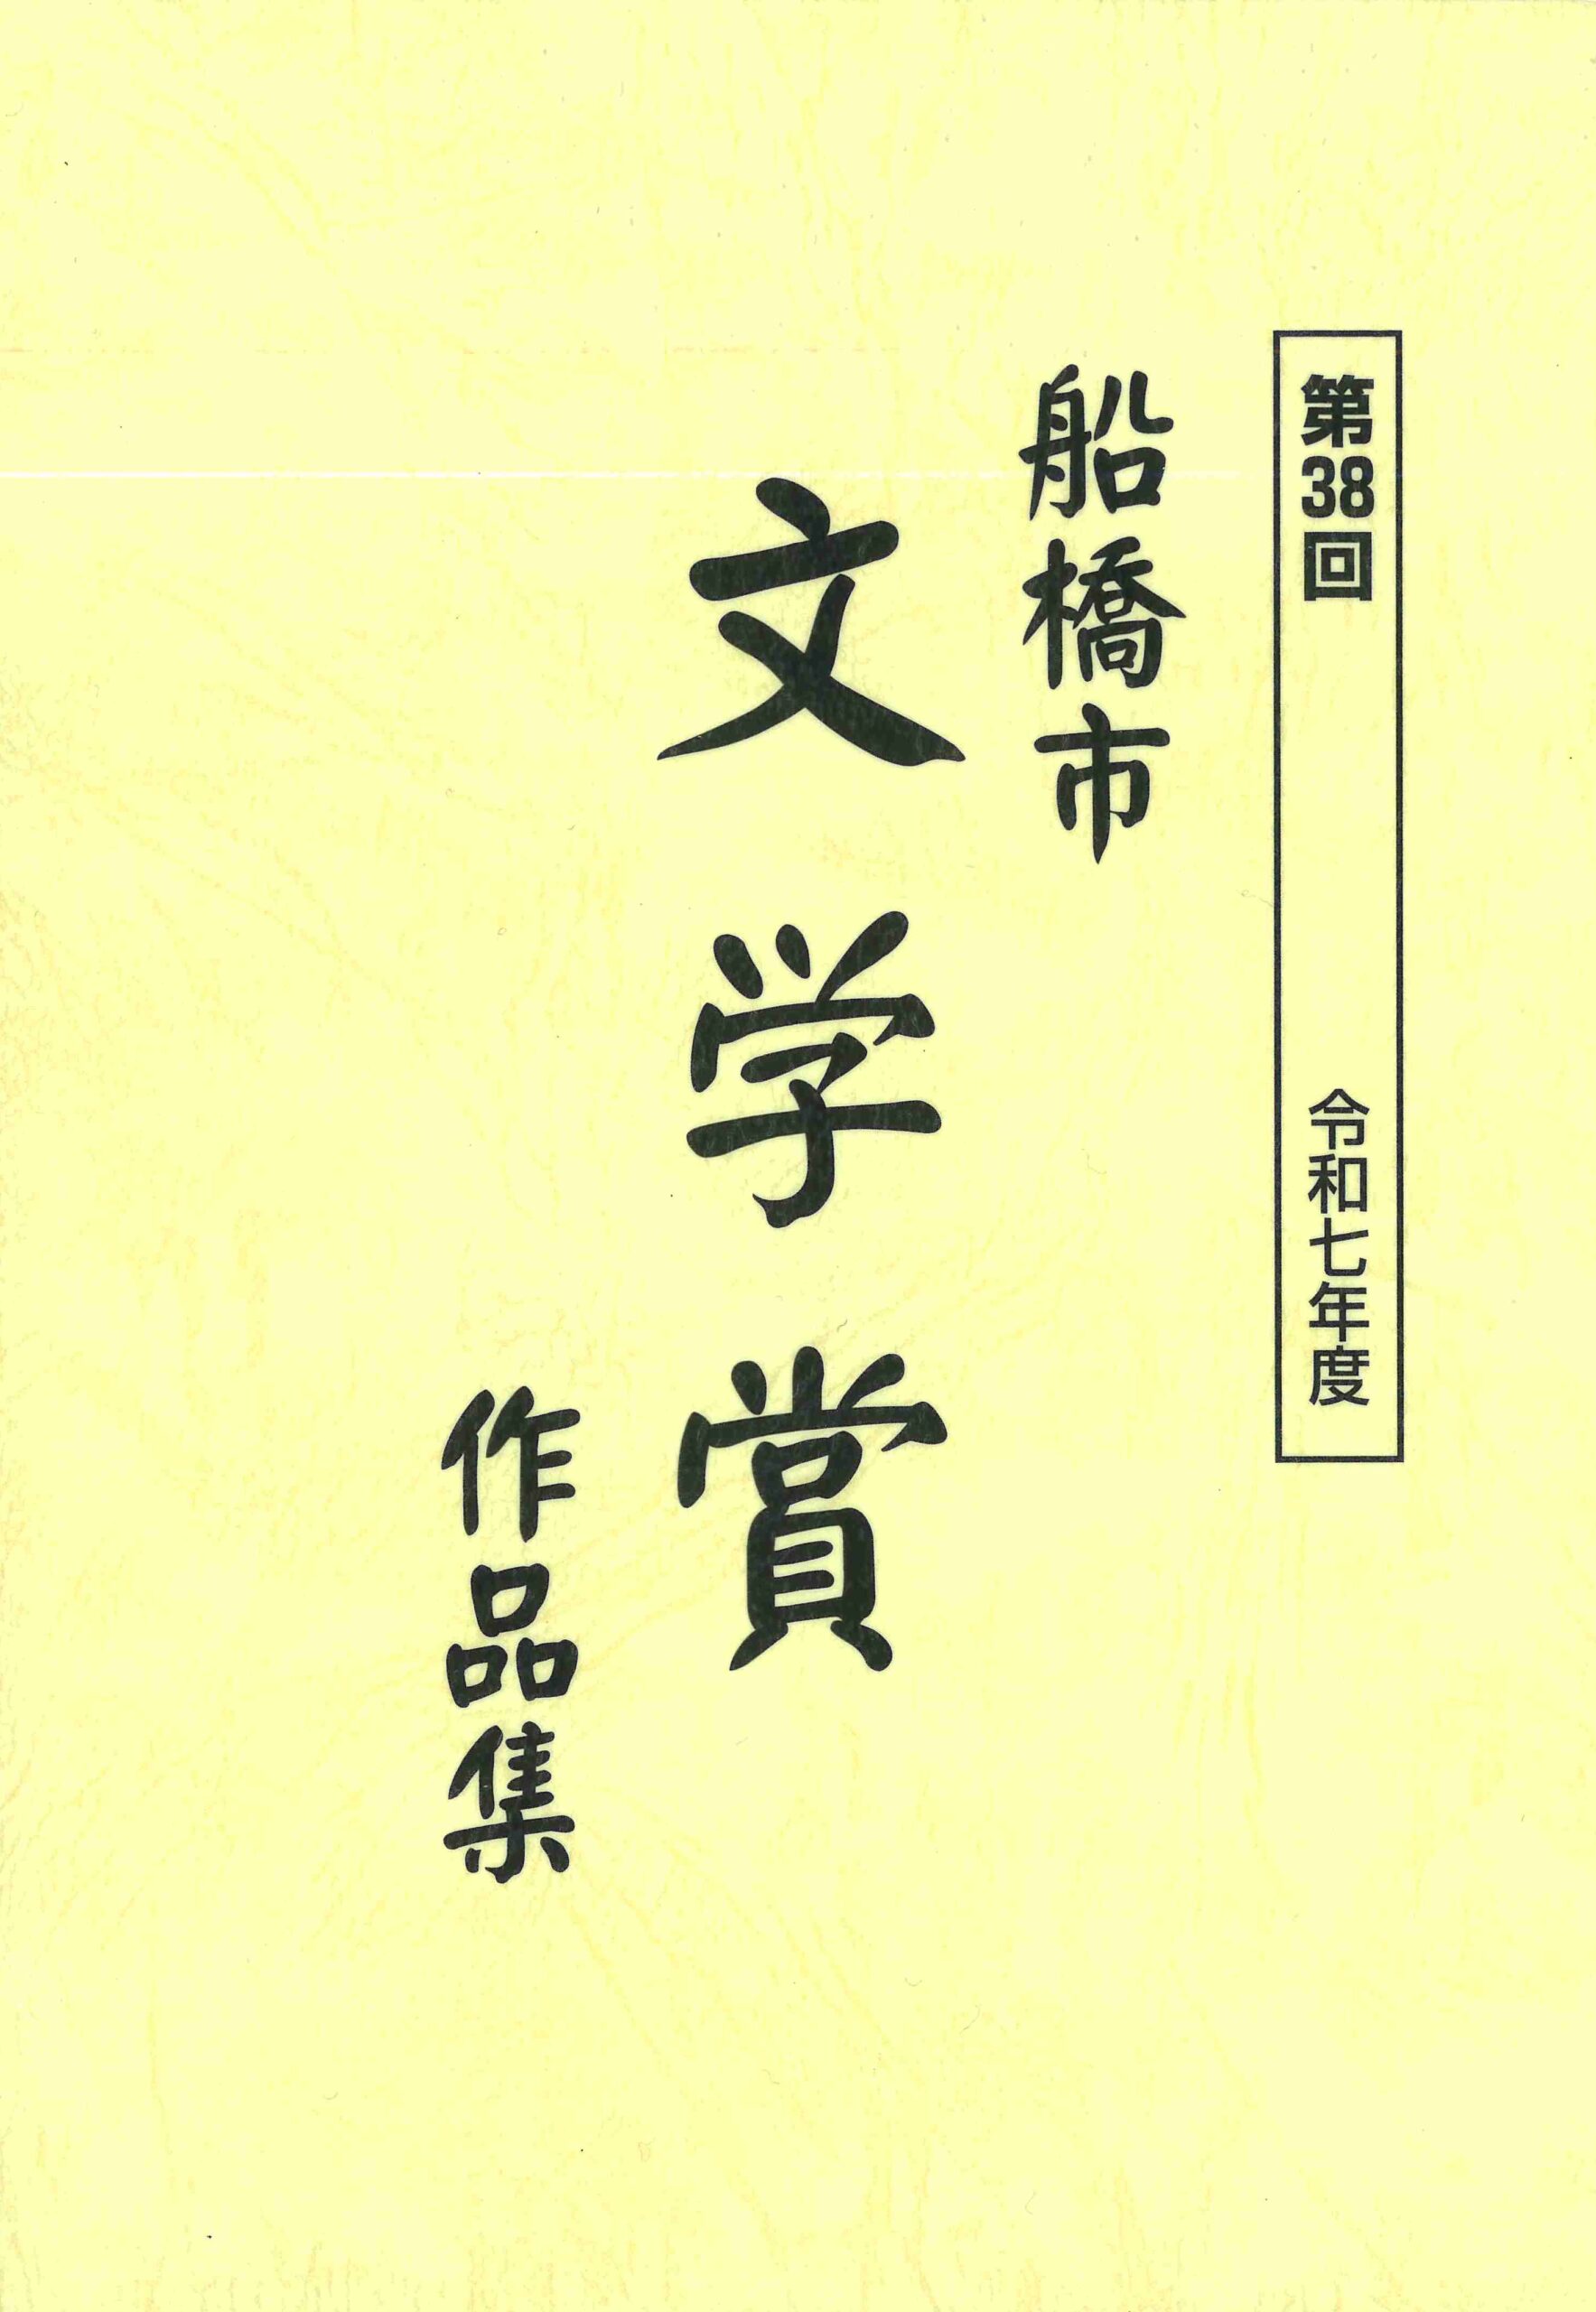 第38回 令和七年度
船橋市
文学賞
作品集